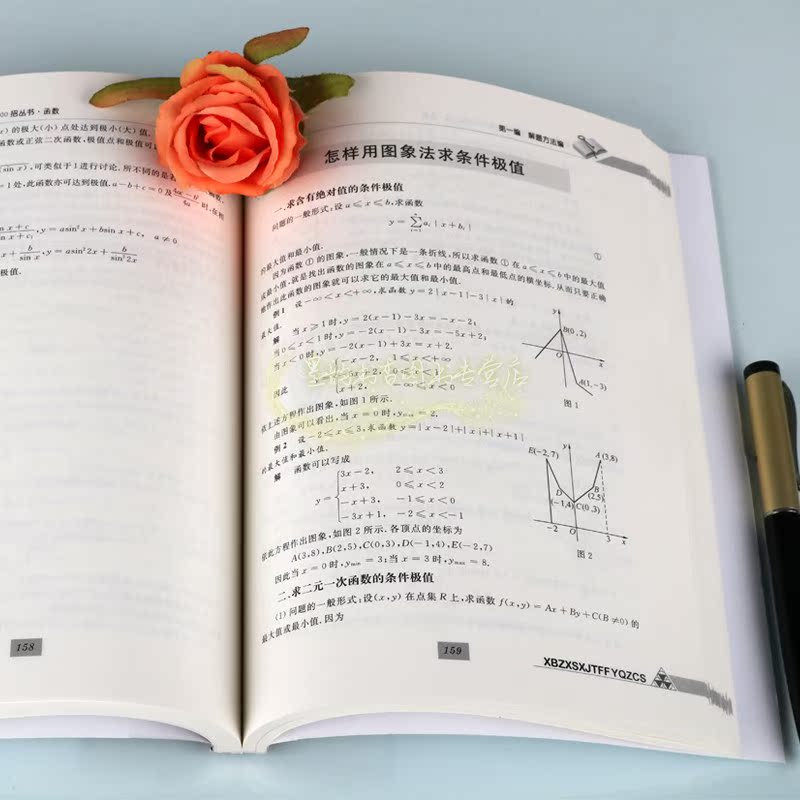 00招丛书·函数
的极大(小)点处达到极小(大)值.
函数或正弦二次函数,极值点和极值可
可类似于1进行讨论,所不同的是
=1处,此函数亦可达到极值.a-b+c=0及
y=asin²x+bsinx+c, a≠0
y=asin²2x+b/sin²2x
极值.
158
第一编 解题方法编
怎样用图象法求条件极值
一、求含有绝对值的条件极值
问题的一般形式:设a⩽x⩽b,求函数
y=∑aᵢ|x+bᵢ| ①
的最大值和最小值.
因为函数①的图象,一般情况下是一条折线,所以求函数①在a⩽x⩽b中的最大值
或最小值,就是找出函数的图象在a⩽x⩽b中的最高点和最低点的横坐标.从而只要正确
地作出此函数的图象就可以求它的最大值和最小值.
例1 设-∞<x<+∞,求函数y=2|x-1|-3|x|的
最大值.
解 当x⩾1时,y=2(x-1)-3x=-x-2;
当0⩽x<1时,y=-2(x-1)-3x=-5x+2;
当x<0时,y=-2(x-1)+3x=x+2.
因此
-x-2, 1⩽x<+∞
+2, 0⩽x<1
x+2, -∞<x<0
y
B(0,2)
O
x
A(1,-3)
图1
依上述方程作出图象,如图1所示.
由图象可以看出,当x=0时,y=2.
例2 设-2⩽x⩽3,求函数y=|x-2|+|x|+|x+1|
的最大值和最小值.
解 函数可以写成
y=
3x-2, 2⩽x<3
x+3, 0⩽x<2
-x+3, -1⩽x<0
-3x+1, -2⩽x<-1
y
E(-2,7)
A(3,8)
D
B
(-1,4)
(2,5)
C(0,3)
-2
O
3
x
图2
依此方程作出图象,如图2所示.各顶点的坐标为
A(3,8),B(2,5),C(0,3),D(-1,4),E(-2,7)
因此当x=0时,yₘᵢₙ=3;当x=3时,yₘₐₓ=8.
二、求二元一次函数的条件极值
(1)问题的一般形式:设(x,y)在点集R上,求函数f(x,y)=Ax+By+C(B≠0)的
最大值或最小值.因为
159
XBZXSXJTFFYQZCS